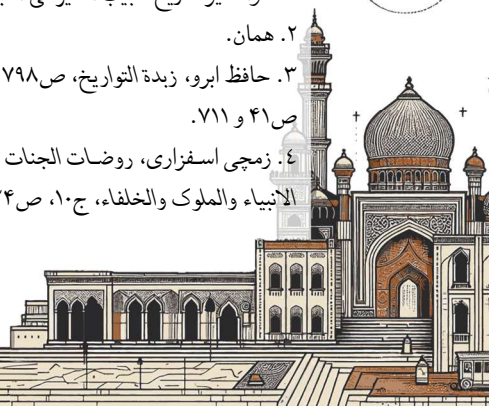 ۲. همان.
۳. حافظ ابرو، زبدة التواریخ، ص۷۹۸
ص۴۱ و ۷۱۱.
٤. زمچی اسفزاری، روضات الجنات
الانبیاء والملوک والخلفاء، ج۱۰،